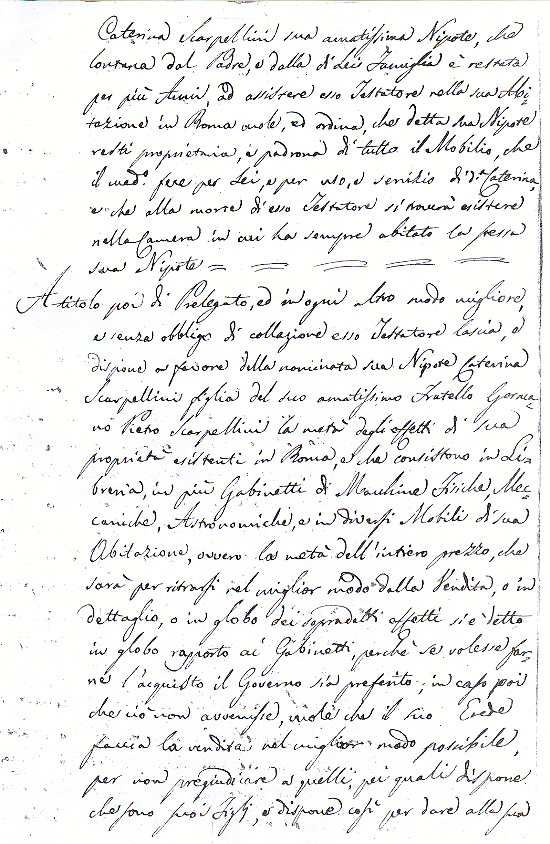 Caterina Scarpellini sua amatissima Nipote, che
lontana dal Padre, e dalla di Lei Famiglia è restata
per più Anni, ad assistere esso Testatore nella sua Abi=
tazione in Roma vuole, ed ordina, che detta sua Nipote
resti proprietaria, e padrona di tutto il Mobilio, che
il med.º fece per Lei, e per uso, e servizio di d.ª Caterina,
e che alla morte di esso Testatore si troverà esistere
nella Camera in cui ha sempre abitato la stessa
sua Nipote = = = = =
A titolo poi di Prelegato, ed in ogni altro modo migliore,
e senza obbligo di collazione esso Testatore lascia, e
dispone a favore della nominata sua Nipote Caterina
Scarpellini figlia del suo amatissimo Fratello Gorma=
no Pietro Scarpellini la metà degli effetti di sua
proprietà esistenti in Roma, e che consistono in Li=
breria, in più Gabinetti di Macchine Fisiche, Mec=
caniche, Astronomiche, e in diversi Mobili di sua
Abitazione, ovvero la metà dell'intiero prezzo, che
sarà per ritrarsi nel miglior modo dalla Vendita, o in
dettaglio, o in globo dei sopradetti effetti si è detto
in globo rapporto ai Gabinetti, perchè se volesse far=
ne l'acquisto il Governo sia preferito; in caso poi
che ciò non avvenisse, vuole che il suo Erede
faccia la vendita nel miglior modo possibile,
per non pregiudicare a quelli, pei quali dispone
che sono suoi Figlj, e dispone così per dare alla sua